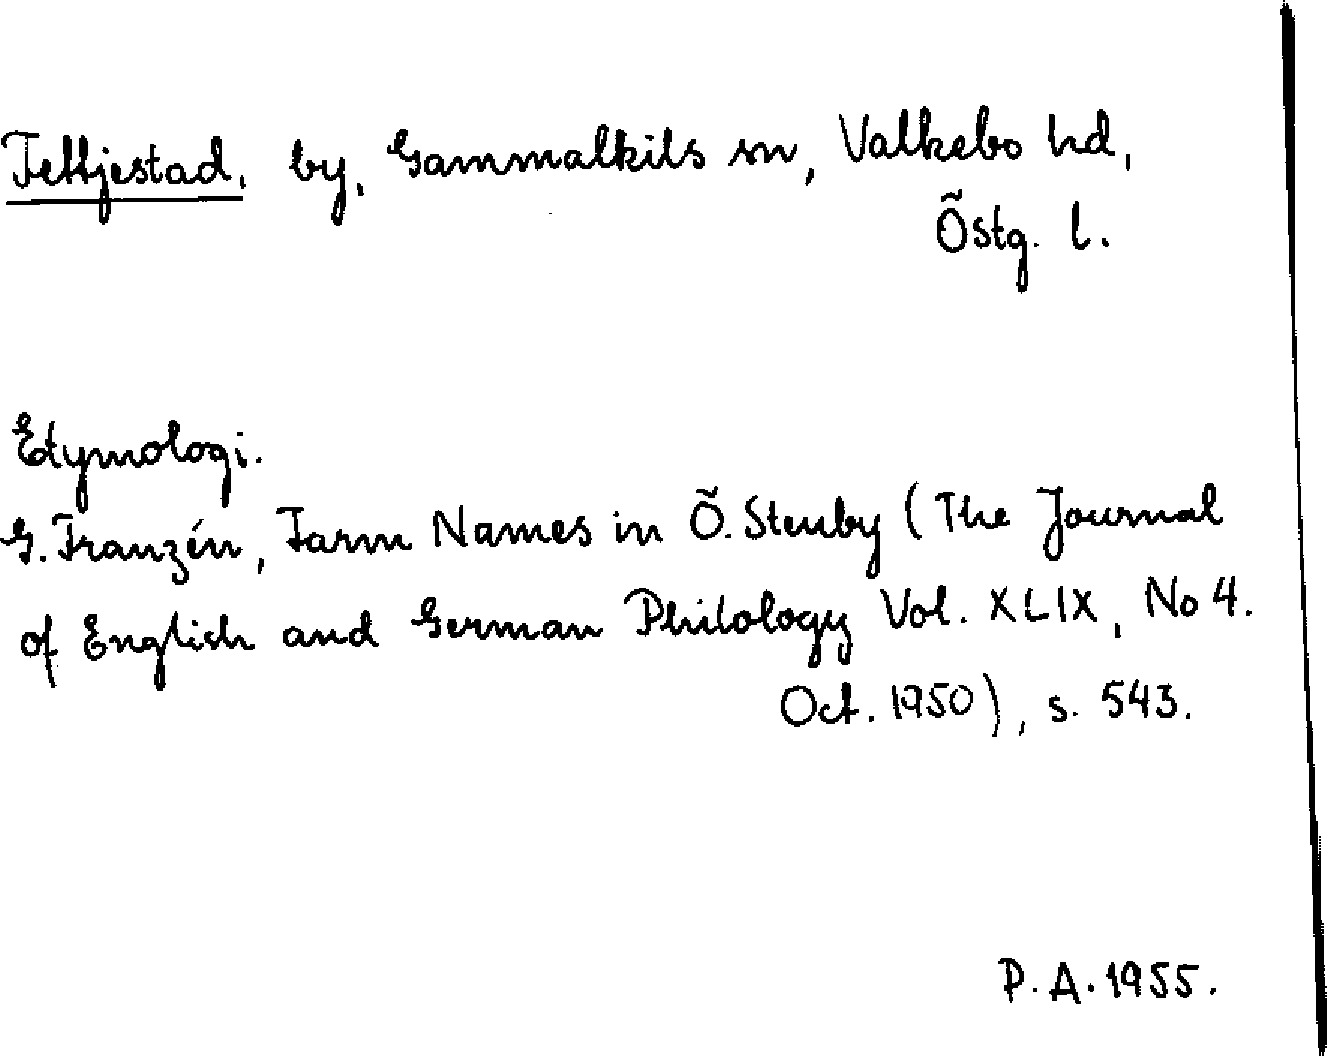 Fettjestad, by, Gammalkils sn, Valkebo hd,
Östg. l.
Etymologi.
G. Franzén, Farm Names in Ö. Stenby (The Journal
of English and German Philology Vol. XLIX, No 4.
Oct. 1950), s. 543.
P. A. 1955.